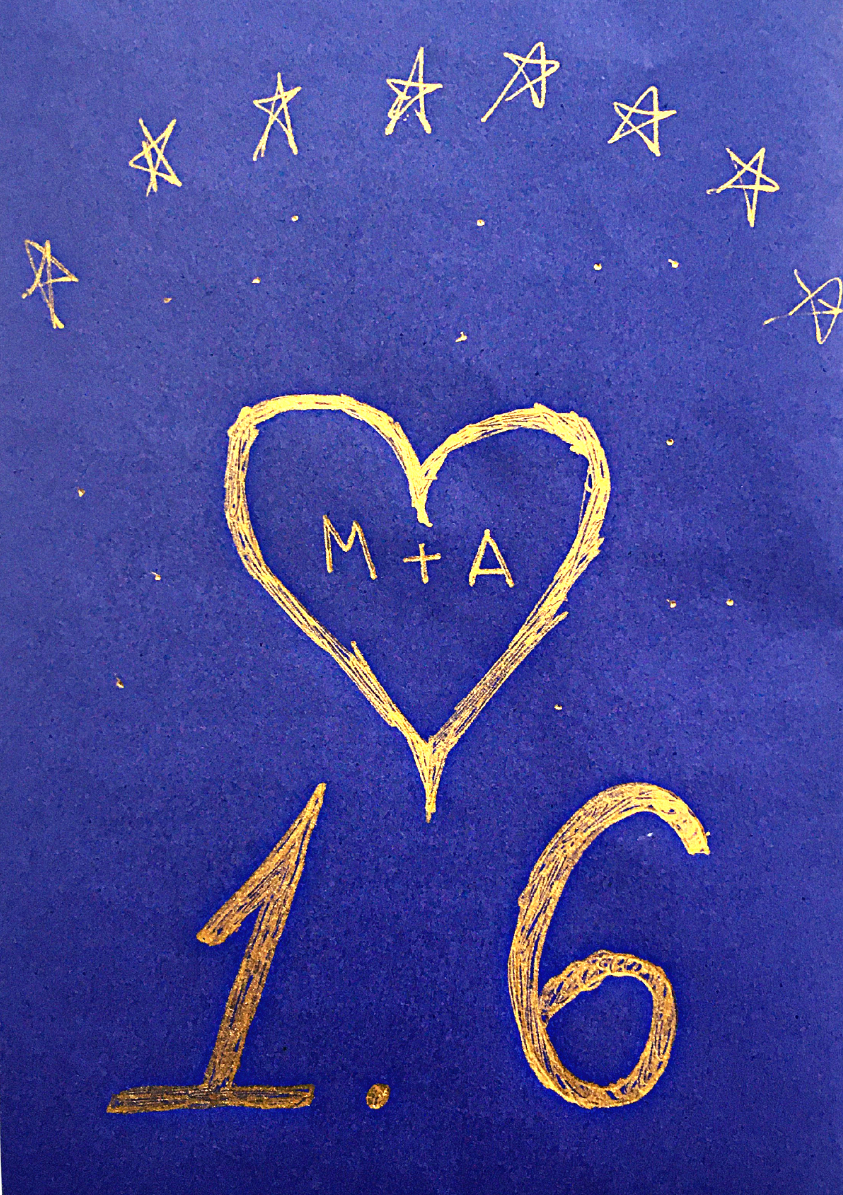 M + A
1.6